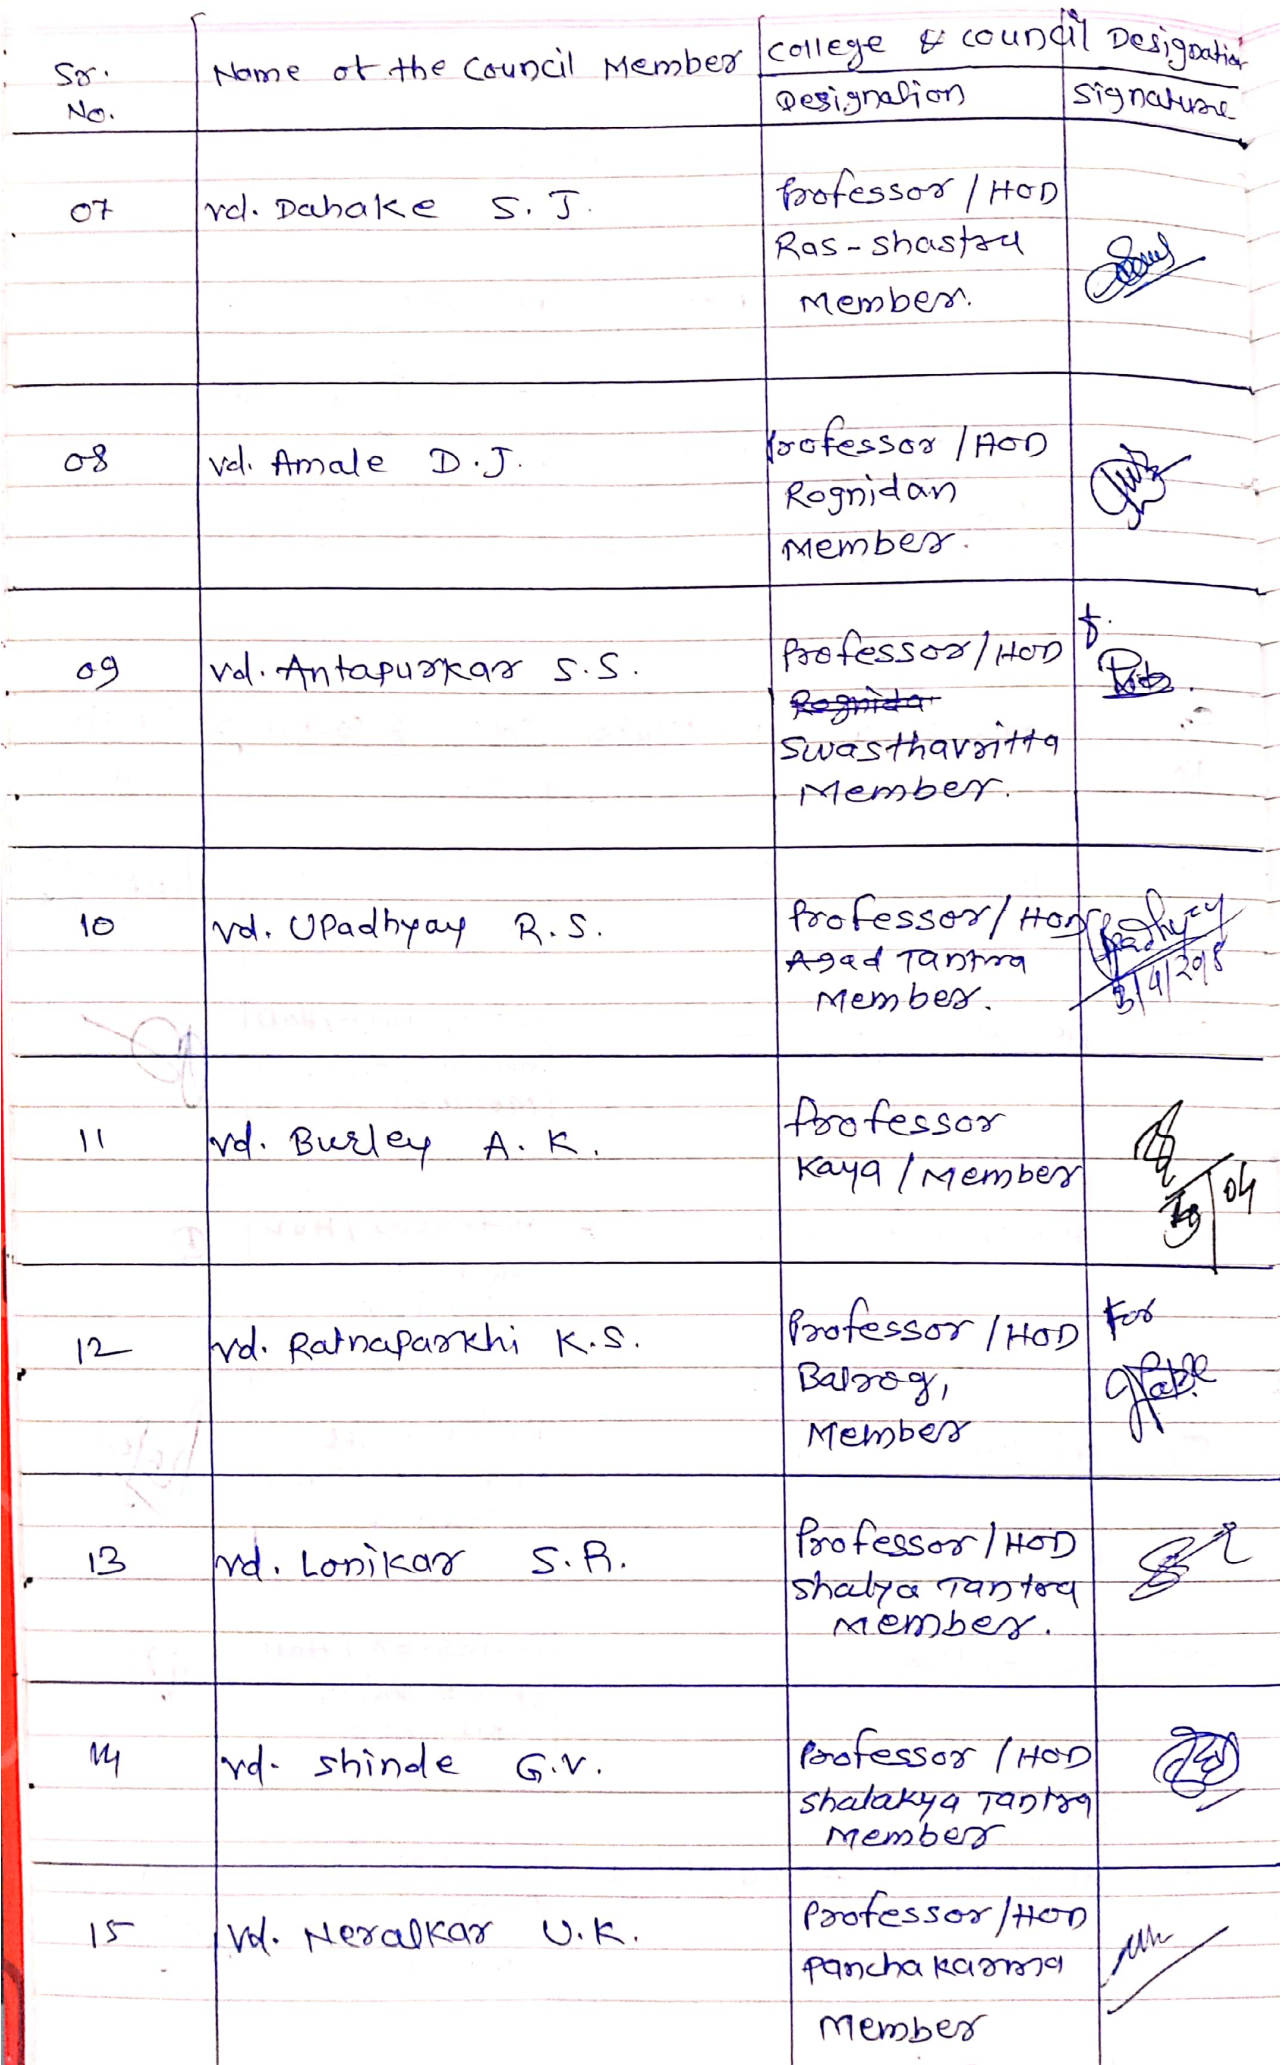 Sr. No.
Name of the Council Member
College & Council Designation
Designation
Signature
07
vd. Dahake S. J.
Professor / HOD
Ras - shastra
Member.
08
vd. Amale D. J.
Professor / HOD
Rognidan
Member.
09
vd. Antapurkar S. S.
Professor / HOD
Rognida
Swasthavritta
Member.
10
vd. Upadhyay R. S.
Professor / HOD
Agad Tantra
Member.
11
vd. Burley A. K.
Professor
Kaya / Member
12
vd. Ratnaparkhi K. S.
Professor / HOD
Balrog,
Member
For
13
vd. Lonikar S. R.
Professor / HOD
Shalya Tantra
Member.
14
vd. Shinde G. V.
Professor / HOD
Shalakya Tantra
Member
15
vd. Neralkar U. K.
Professor / HOD
Panchakarma
Member